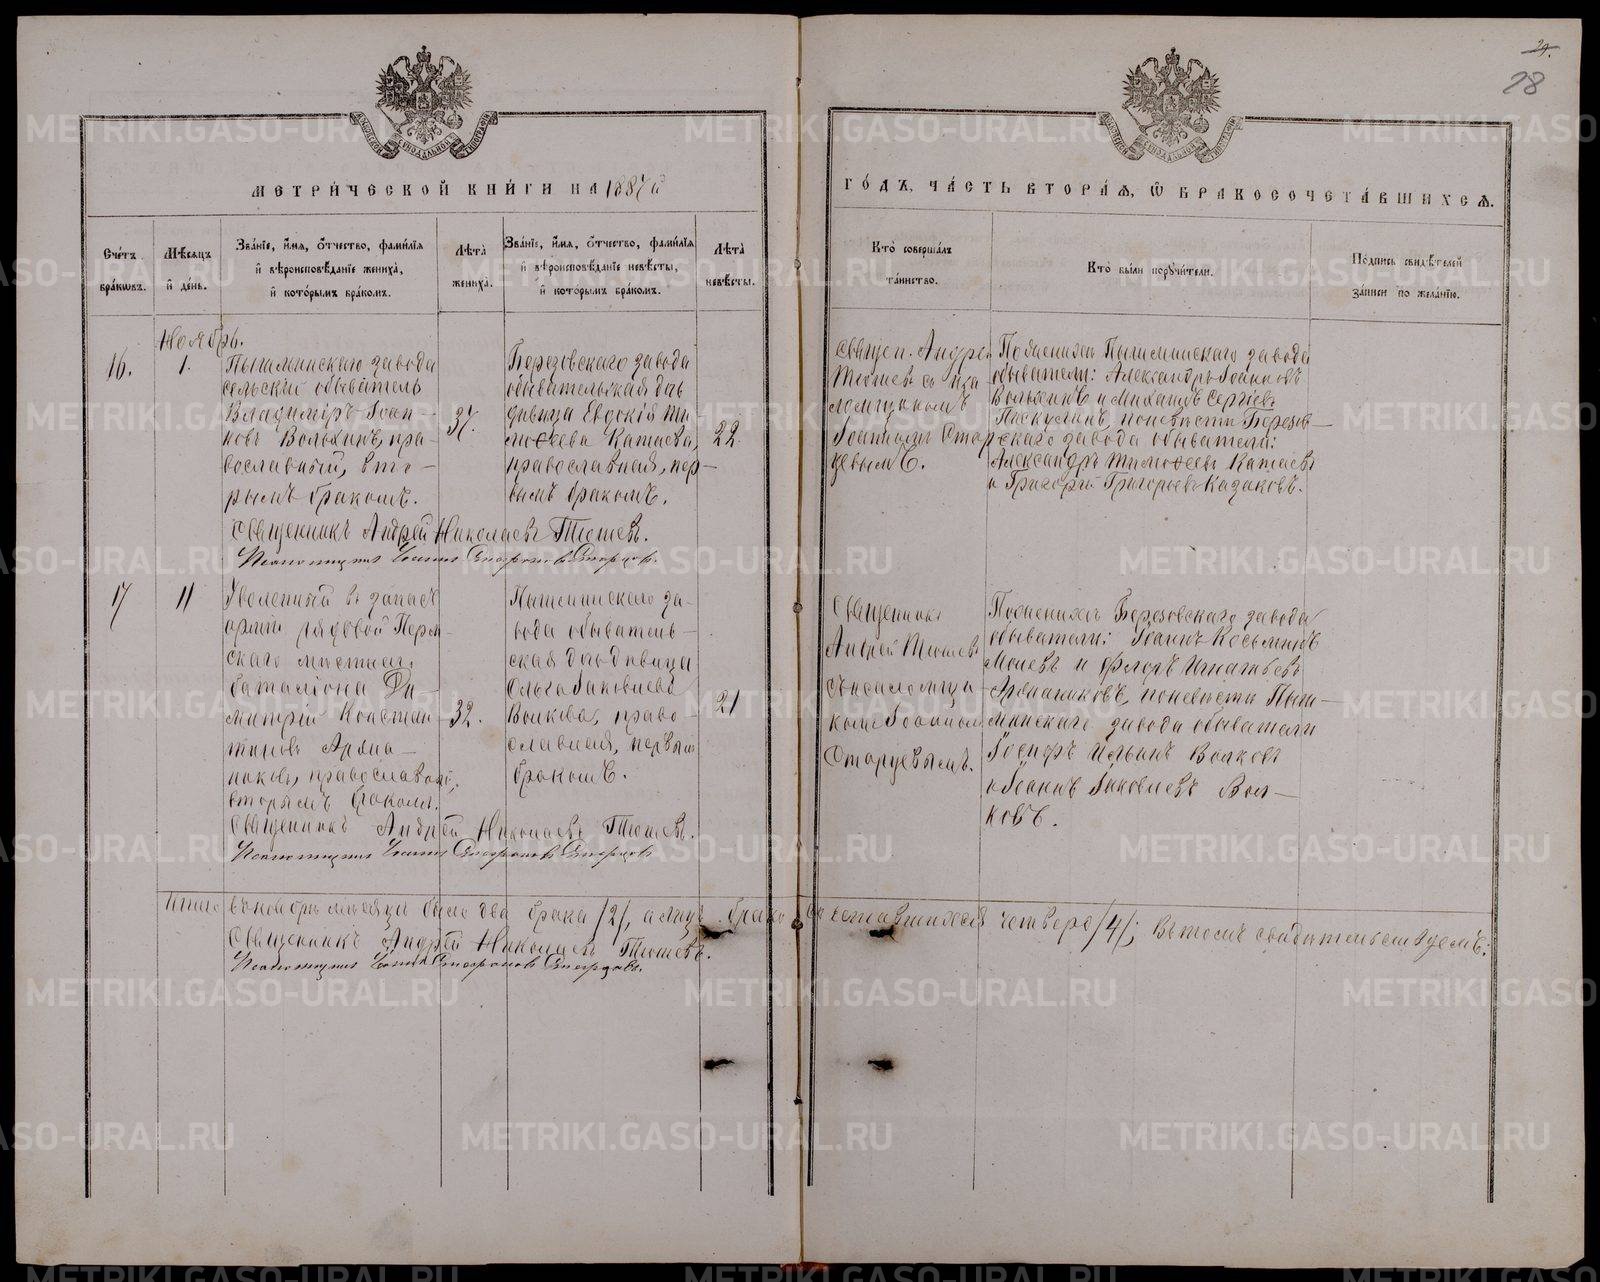 24.
28
МЕТРИ́ЧЕСКОЙ КНИ́ГИ НА 1887й
ГО́ДЪ, ЧА́СТЬ ВТОРА́Ѧ, Ѽ БРАКОСОЧЕТА́ВШИХСѦ.
Сче́тъ бра́кѡвъ.
Мѣ́сѧцъ и҆ де́нь.
Зва́нїе, и҆́мѧ, ѻ҆́тчество, фами́лїѧ и҆ вѣроисповѣ́данїе жениха̀, и҆ кото́рымъ бра́комъ.
Лѣта̀ жениха̀.
Зва́нїе, и҆́мѧ, ѻ҆́тчество, фами́лїѧ и҆ вѣроисповѣ́данїе невѣ́сты, и҆ кото́рымъ бра́комъ.
Лѣта̀ невѣ́сты.
Кто̀ соверша́лъ та́инство.
Кто̀ бы́ли пору́чители.
По́дпись свидѣ́телей за́писи по жела́нїю.
Ноябрь.
16.
1.
Пышминскаго завода
сельскій обыватель
Владиміръ Іоан-
новъ Волхинъ, пра-
вославный, вто-
рымъ бракомъ.
37.
Березовскаго завода
обывательская дочь
дѣвица Евдокія Ти-
моѳеева Катаева,
православная, пер-
вымъ бракомъ.
22.
Священ. Андрей
Тюшевъ съ пса
ломщикомъ
Іоанномъ Стар
цевымъ.
По женихѣ Пышминскаго завода
обыватели: Александръ Іоанновъ
Волхинъ и Михаилъ Сергіевъ
по невѣстѣ Березов-
скаго завода обыватели:
Александръ Тимоѳеевъ Катаевъ
и Григорій Григорьевъ Казаковъ.
Священникъ Андрей Николаевъ Тюшевъ.
Псаломщикъ Іоаннъ Старцовъ.
17
11
Уволенный въ запасъ
арміи рядовой Перм-
скаго мѣстнаго
баталіона Ди-
митрій Констан
тиновъ
православный,
вторымъ бракомъ.
32.
Пышминскаго за-
вода обыватель-
ская дочь дѣвица
Ольга Іаковлева
Волкова, право-
славная, первымъ
бракомъ.
21
Священникъ
Андрей Тюшевъ
съ псаломщи
комъ Іоанномъ
Старцевымъ.
По женихѣ Березовскаго завода
обыватели: Іоаннъ Косьминъ
и Флоръ Игнатьевъ
по невѣстѣ Пыш-
минскаго завода обыватели
Іосифъ Ильинъ Волковъ
и Іоаннъ Іаковлевъ Вол-
ковъ.
Священникъ Андрей Николаевъ Тюшевъ.
Псаломщикъ Іоаннъ Старцовъ
Итого въ ноябрѣ мѣсяцѣ было два брака /2/, а лицъ бракосочетавшихся четверо /4/; въ томъ свидѣтельствуемъ:
Священникъ Андрей Николаевъ Тюшевъ.
Псаломщикъ Іоаннъ Старцовъ.
METRIKI.GASO-URAL.RU